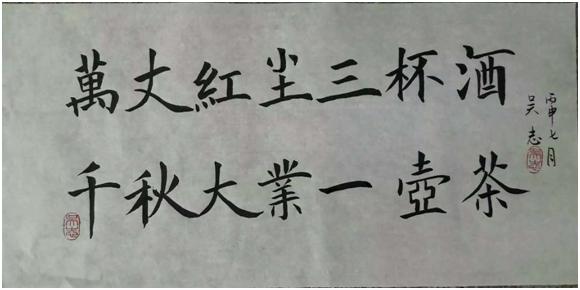 萬丈紅尘三杯酒
千秋大業一壺茶
丙申七月
吴志